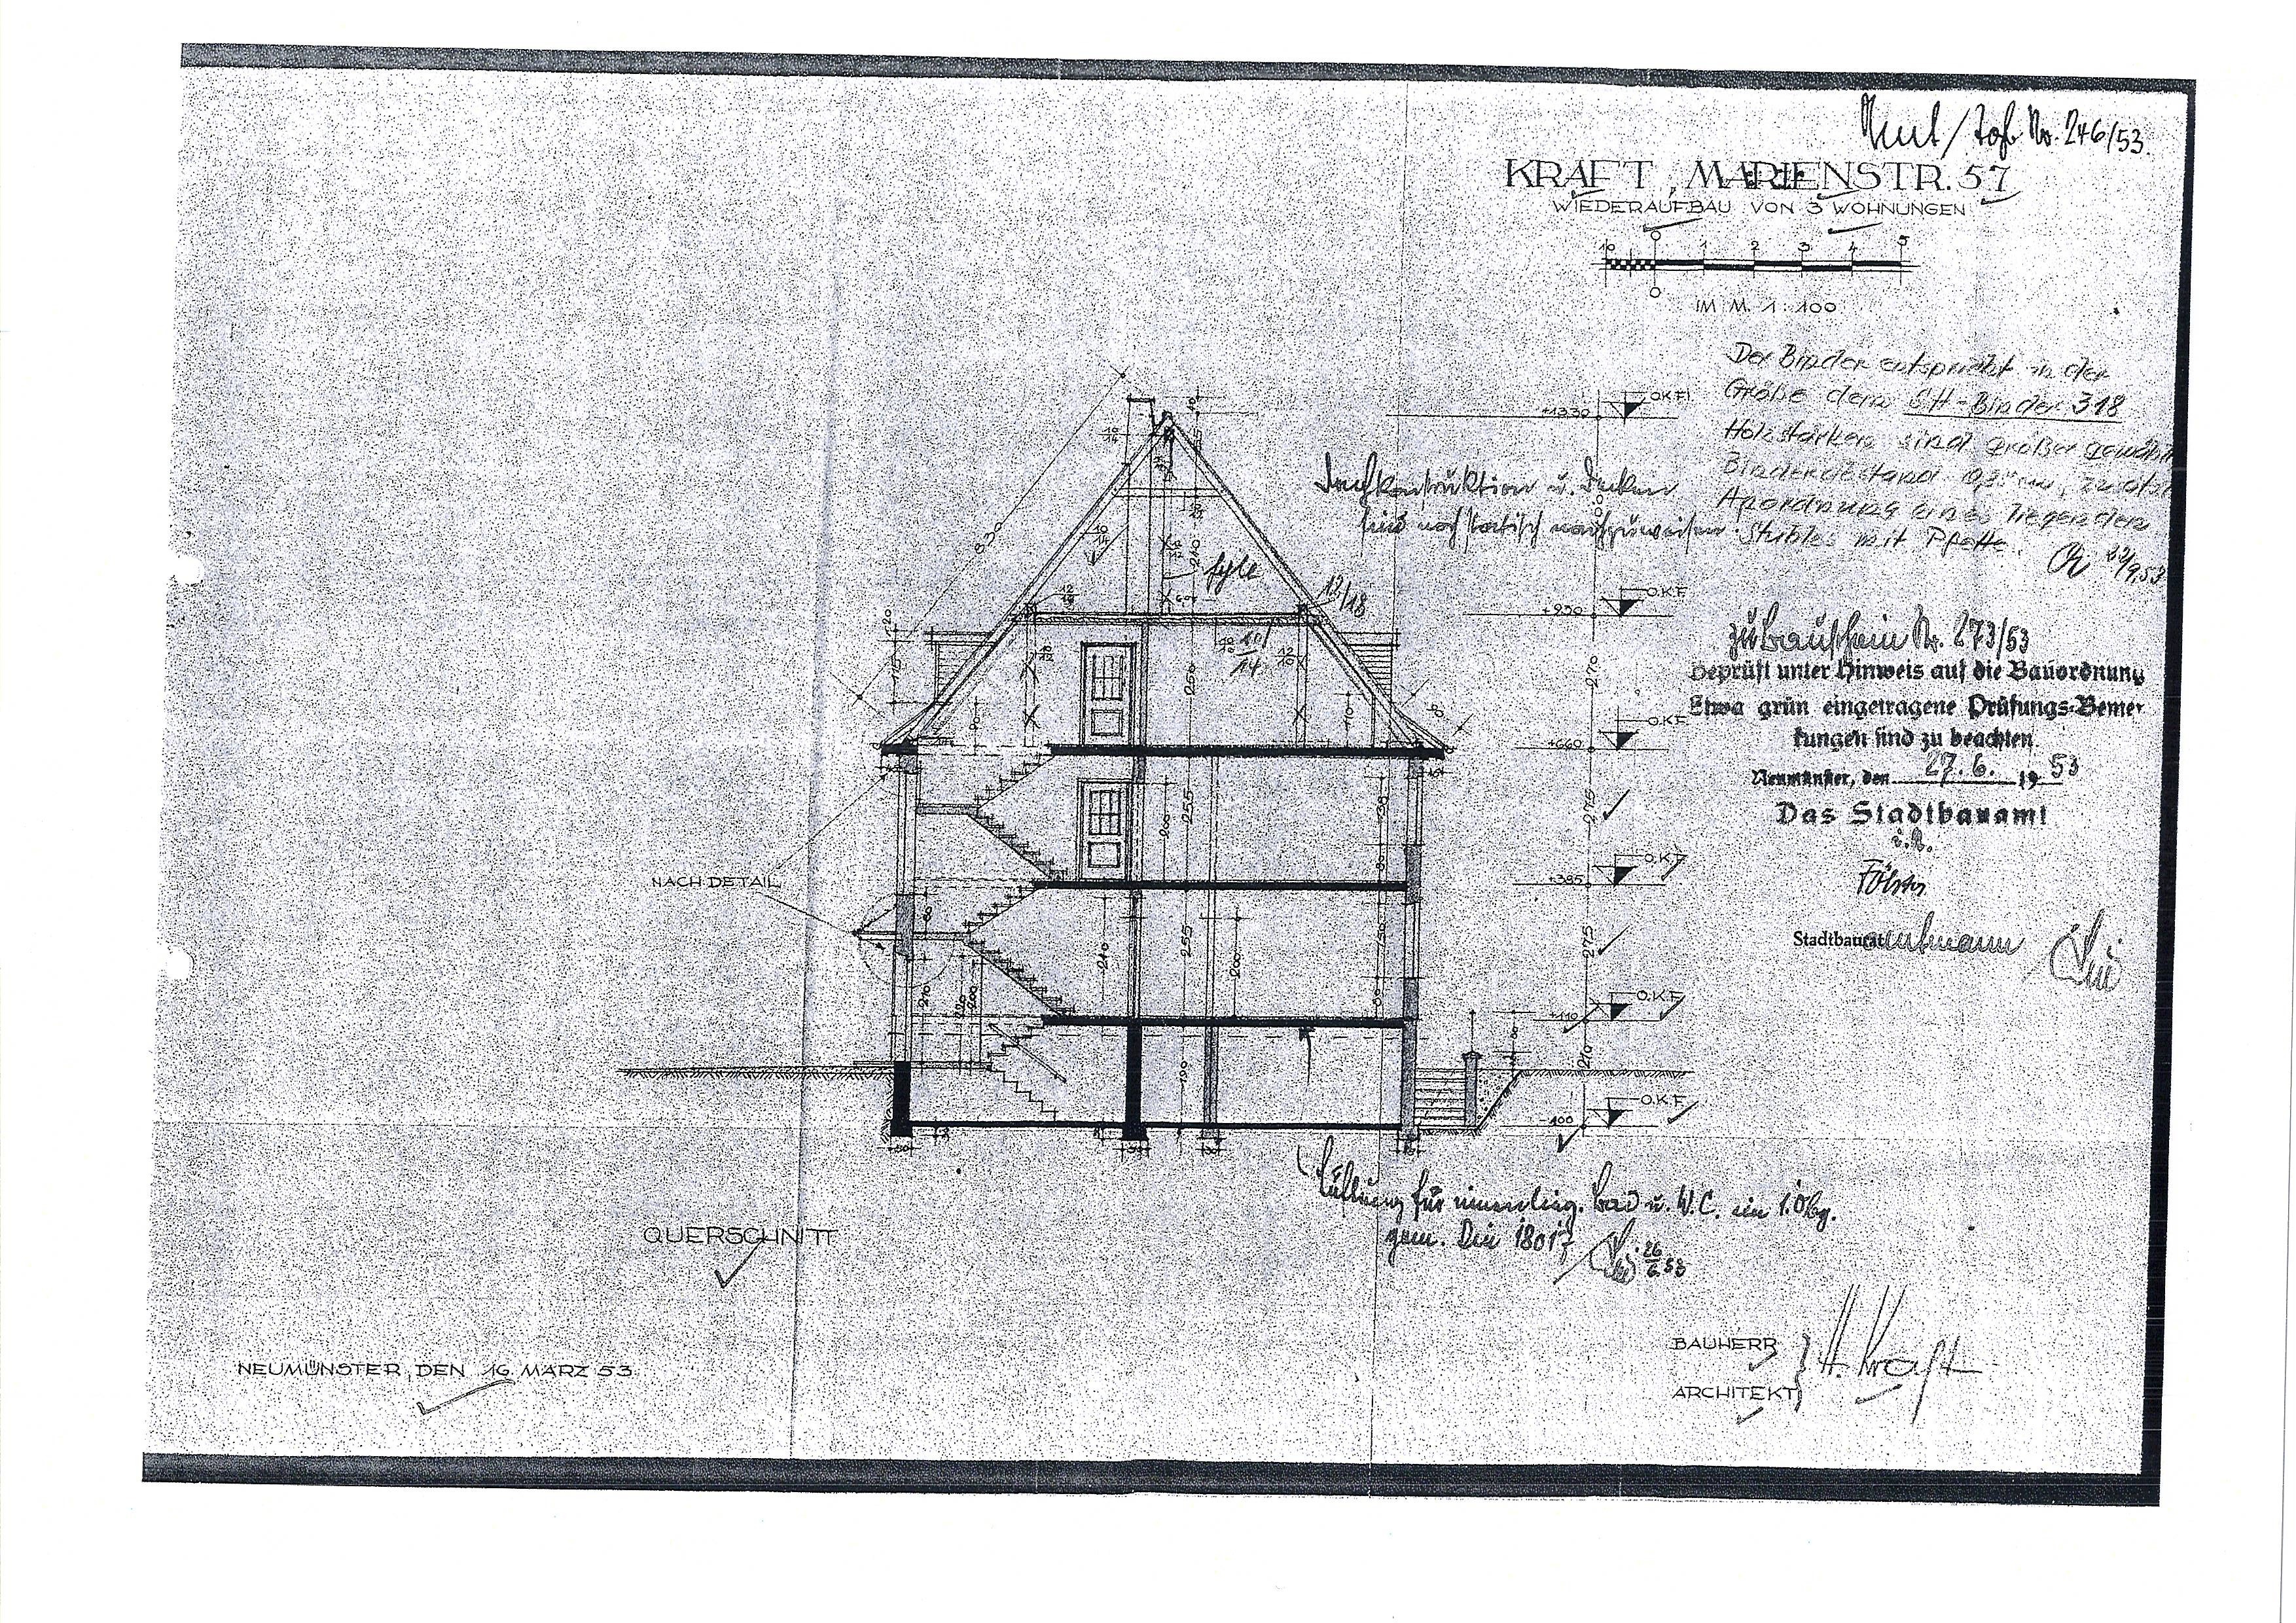 No. 246/53.
KRAFT, MARIENSTR. 57
WIEDERAUFBAU VON 3 WOHNUNGEN
10 0 1 2 3 4 5
0
IM M. 1:100
Der Binder entspricht in der
Größe dem SH-Binder 318
Holzstärken sind größer gewählt
Binderabstand
Anordnung eines liegenden
Stuhles mit Pfette.
22/9.53
Dachkonstruktion u. Decken
sind noch statisch nachzuweisen
zu Bauschein Nr. 273/53
Geprüft unter Hinweis auf die Bauordnung
Etwa grün eingetragene Prüfungs-Bemer-
kungen sind zu beachten
Neumünster, den 27. 6. 1953
Das Stadtbauamt
Stadtbauamtmann
O.K.F.
+1330
O.K.F.
+930
270
O.K.F.
+660
275
O.K.F.
+385
275
O.K.F.
+110
210
O.K.F.
-100
830
210
12/18
250
255
200
255
210
200
190
NACH DETAIL
Lüftung für innenlieg. Bad u. W.C. im 1. Obg.
gem. Din 18017
26/6.53
QUERSCHNITT
NEUMÜNSTER, DEN 16 MÄRZ 53
BAUHERR
ARCHITEKT
H. Kraft